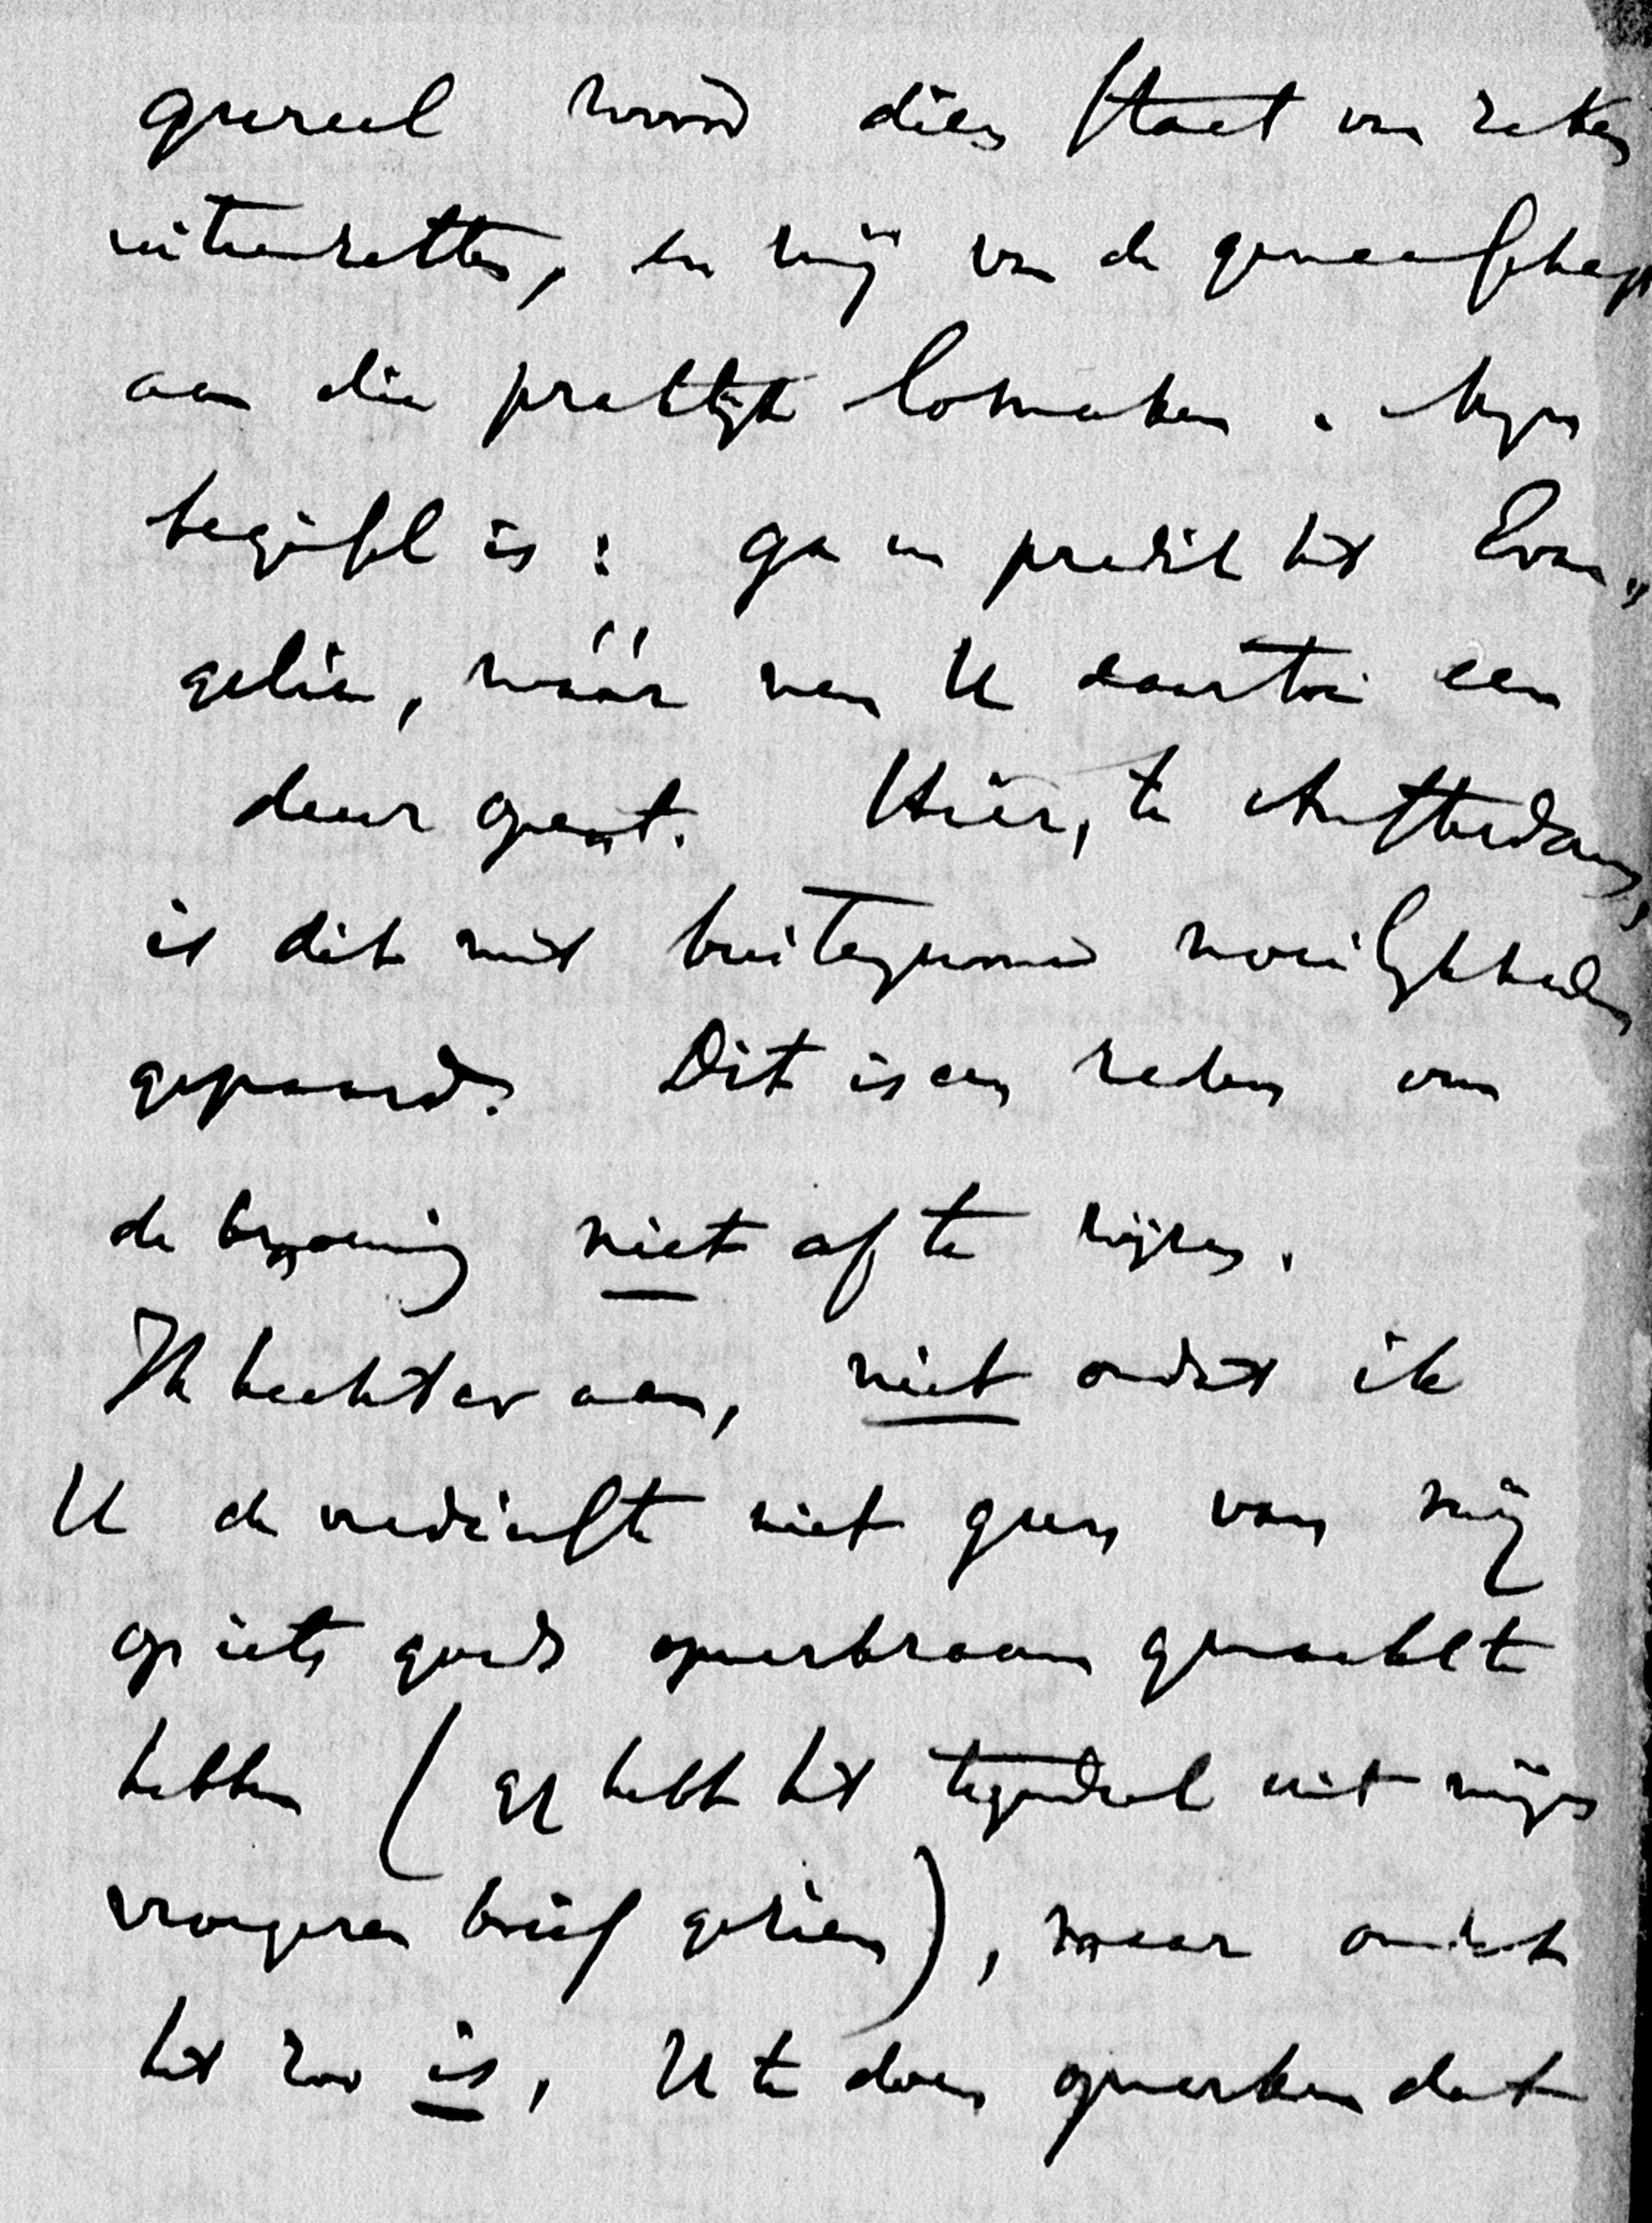 gereed woord dien staat van zaken
uiteenzetten, en mij van de gemeenschap
aan die praktijk losmaken. Mijn
beginsel is: ga en predik het Evan„
gelie, wáár men U daartoe een
deur opent. Hier, te Amsterdam,
is dit met buitengewone moeilijkheden
gepaard. Dit is een reden om
de bezoeming niet af te wijzen.
Ik hecht er aan, niet omdat ik
U de verdienste niet gun van mij
op iets goeds opmerkzaam gemaakt te
hebben (gij hebt het tegendeel uit mijn
vroegeren brief gezien), maar omdat
het zoo is, U te doen opmerken dat